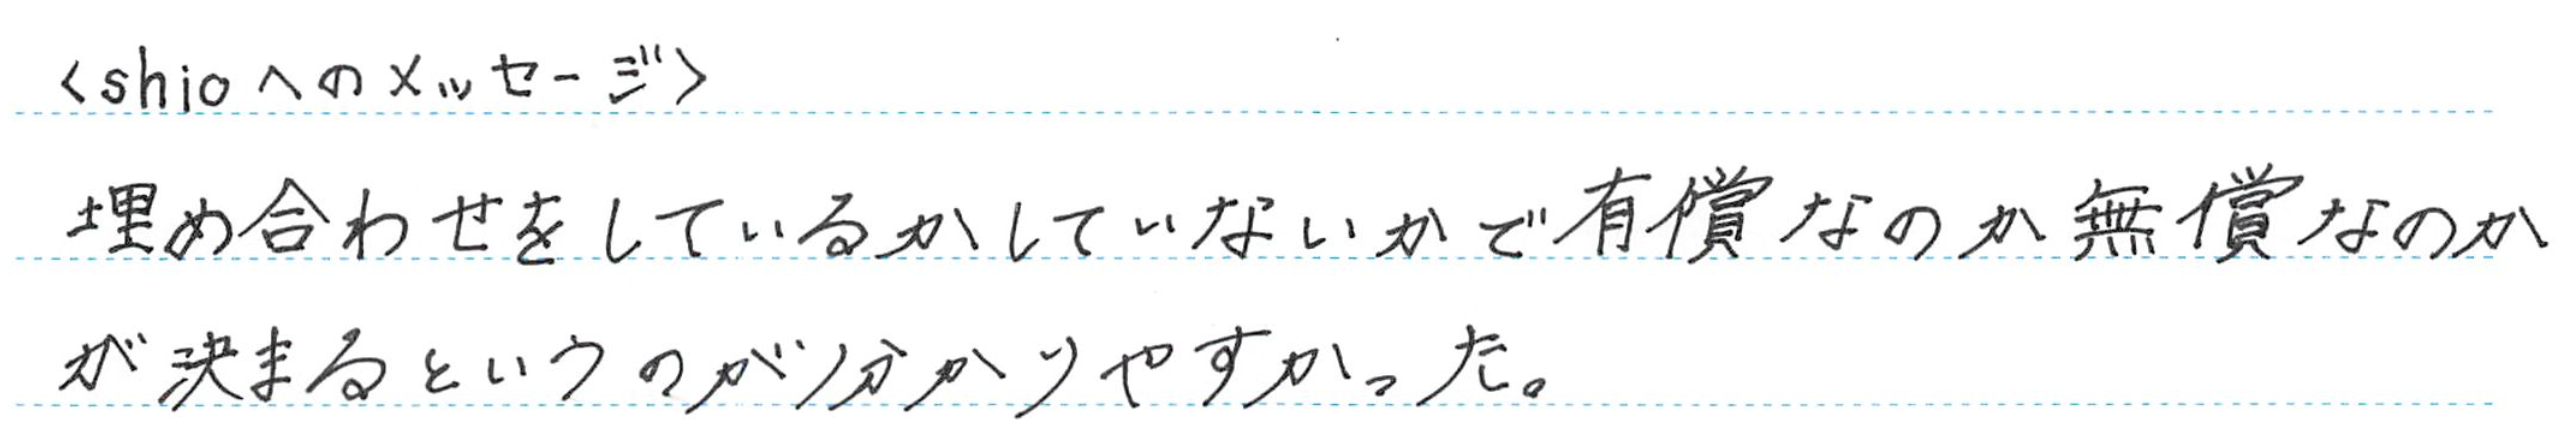 <shioへのメッセージ>
埋め合わせをしているかしていないかで有償なのか無償なのか
が決まるというのが分かりやすかった。